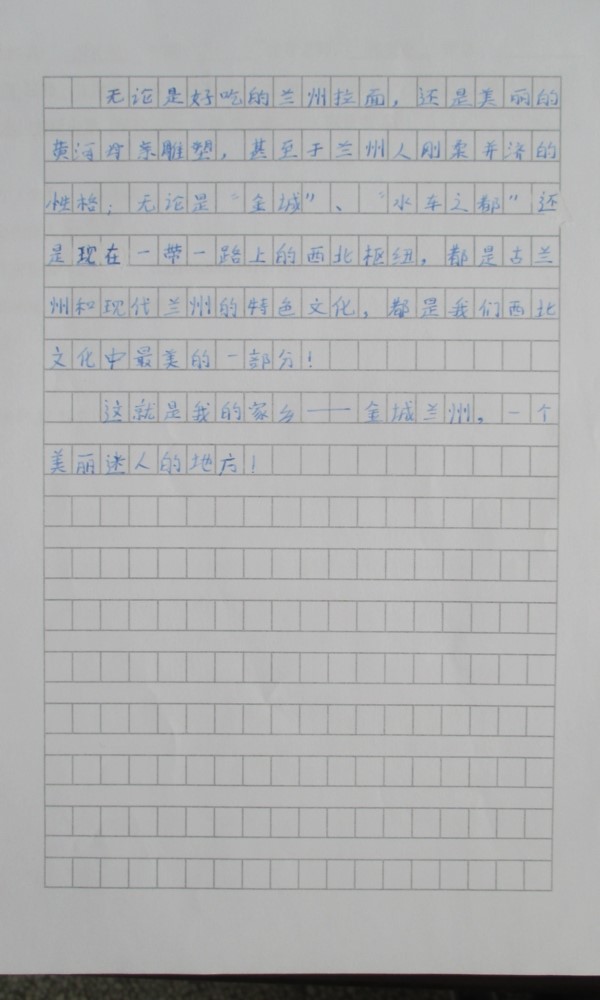 无论是好吃的兰州拉面，还是美丽的
黄河母亲雕塑，甚至于兰州人刚柔并济的
性格；无论是“金城”、“水车之都”还
是现在一带一路上的西北枢纽，都是古兰
州和现代兰州的特色文化，都是我们西北
文化中最美的一部分！
这就是我的家乡——金城兰州，一个
美丽迷人的地方！